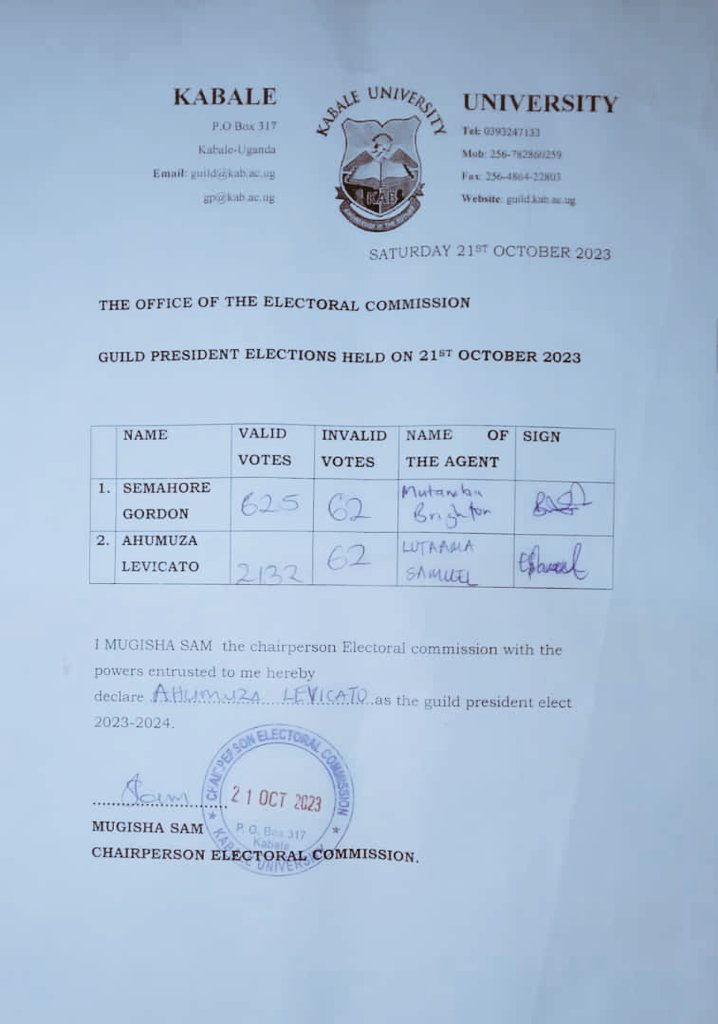 KABALE
P.O Box 317
Kabale-Uganda
Email: guild@kab.ac.ug
gp@kab.ac.ug
KABALE UNIVERSITY
KAB
KNOWLEDGE IS THE FUTURE
UNIVERSITY
Tel: 0393247133
Mob: 256-782860259
Fax: 256-4864-22803
Website: guild.kab.ac.ug
SATURDAY 21ST OCTOBER 2023
THE OFFICE OF THE ELECTORAL COMMISSION
GUILD PRESIDENT ELECTIONS HELD ON 21ST OCTOBER 2023
NAME VALID VOTES INVALID VOTES NAME OF THE AGENT SIGN
1. SEMAHORE GORDON 625 62 Brighton
2. AHUMUZA LEVICATO 2132 62 LUTAAMA SAMUEL
I MUGISHA SAM the chairperson Electoral commission with the
powers entrusted to me hereby
declare AHUMUZA LEVICATO as the guild president elect
2023-2024.
CHAIRPERSON ELECTORAL COMMISSION
21 OCT 2023
P. O. Box 317
Kabale
KABALE UNIVERSITY
MUGISHA SAM
CHAIRPERSON ELECTORAL COMMISSION.